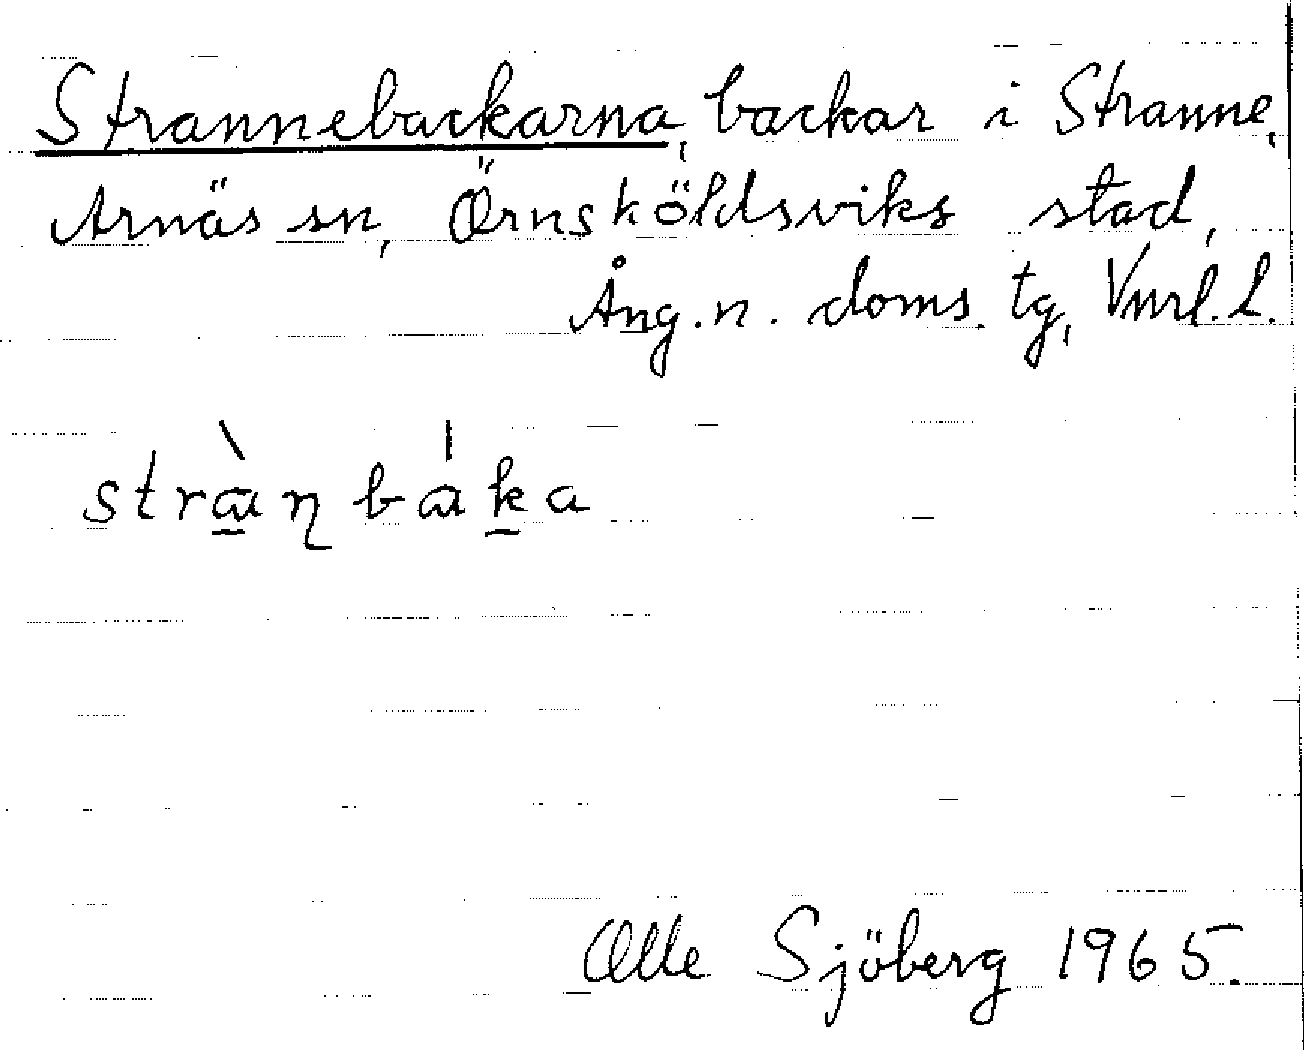 Strannebackarna, backar i Stranne,
Arnäs sn, Örnsköldsviks stad,
Ång. n. doms. tg, Vnrl. l.
stràŋbáka
Olle Sjöberg 1965.